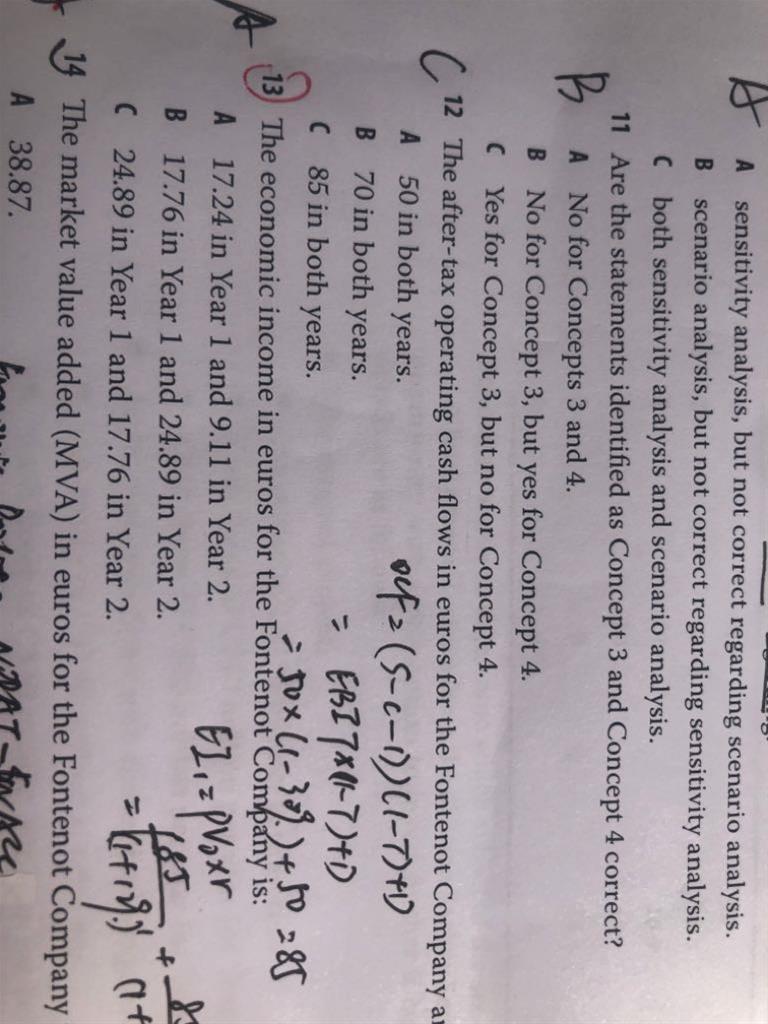 A
A sensitivity analysis, but not correct regarding scenario analysis.
B scenario analysis, but not correct regarding sensitivity analysis.
C both sensitivity analysis and scenario analysis.
11 Are the statements identified as Concept 3 and Concept 4 correct?
B
A No for Concepts 3 and 4.
B No for Concept 3, but yes for Concept 4.
C Yes for Concept 3, but no for Concept 4.
C
12 The after-tax operating cash flows in euros for the Fontenot Company
A 50 in both years.
B 70 in both years.
C 85 in both years.
OCF = (S-C-D)(1-T)+D
= EBIT×(1-T)+D
= 50×(1-30%)+50 = 85
A
13 The economic income in euros for the Fontenot Company is:
A 17.24 in Year 1 and 9.11 in Year 2.
B 17.76 in Year 1 and 24.89 in Year 2.
C 24.89 in Year 1 and 17.76 in Year 2.
EI₁ = PV₀×r
14 The market value added (MVA) in euros for the Fontenot Company
A 38.87.